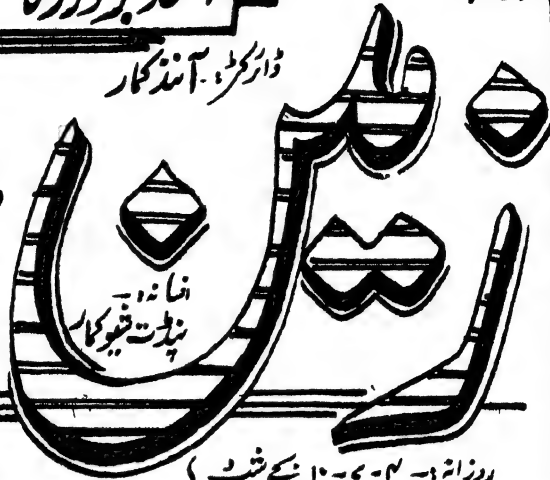 ڈائرکٹر:۔ آنند کمار
زمین
افسانہ:۔
پنڈت شیو کمار
روزانہ:۔ ۴-۷-۱۰ بجے شب